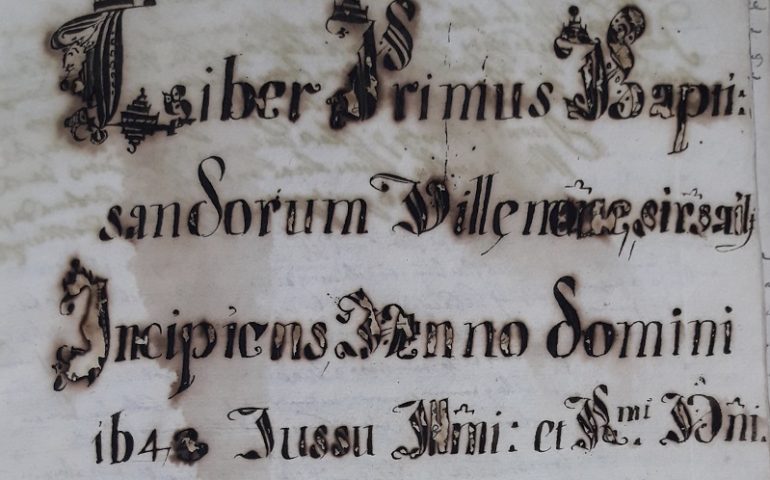 Liber Primus Bapti:
sandorum Ville
Incipiens Anno domini
Jussu Illm̃i: et R.mi D̃ñi.